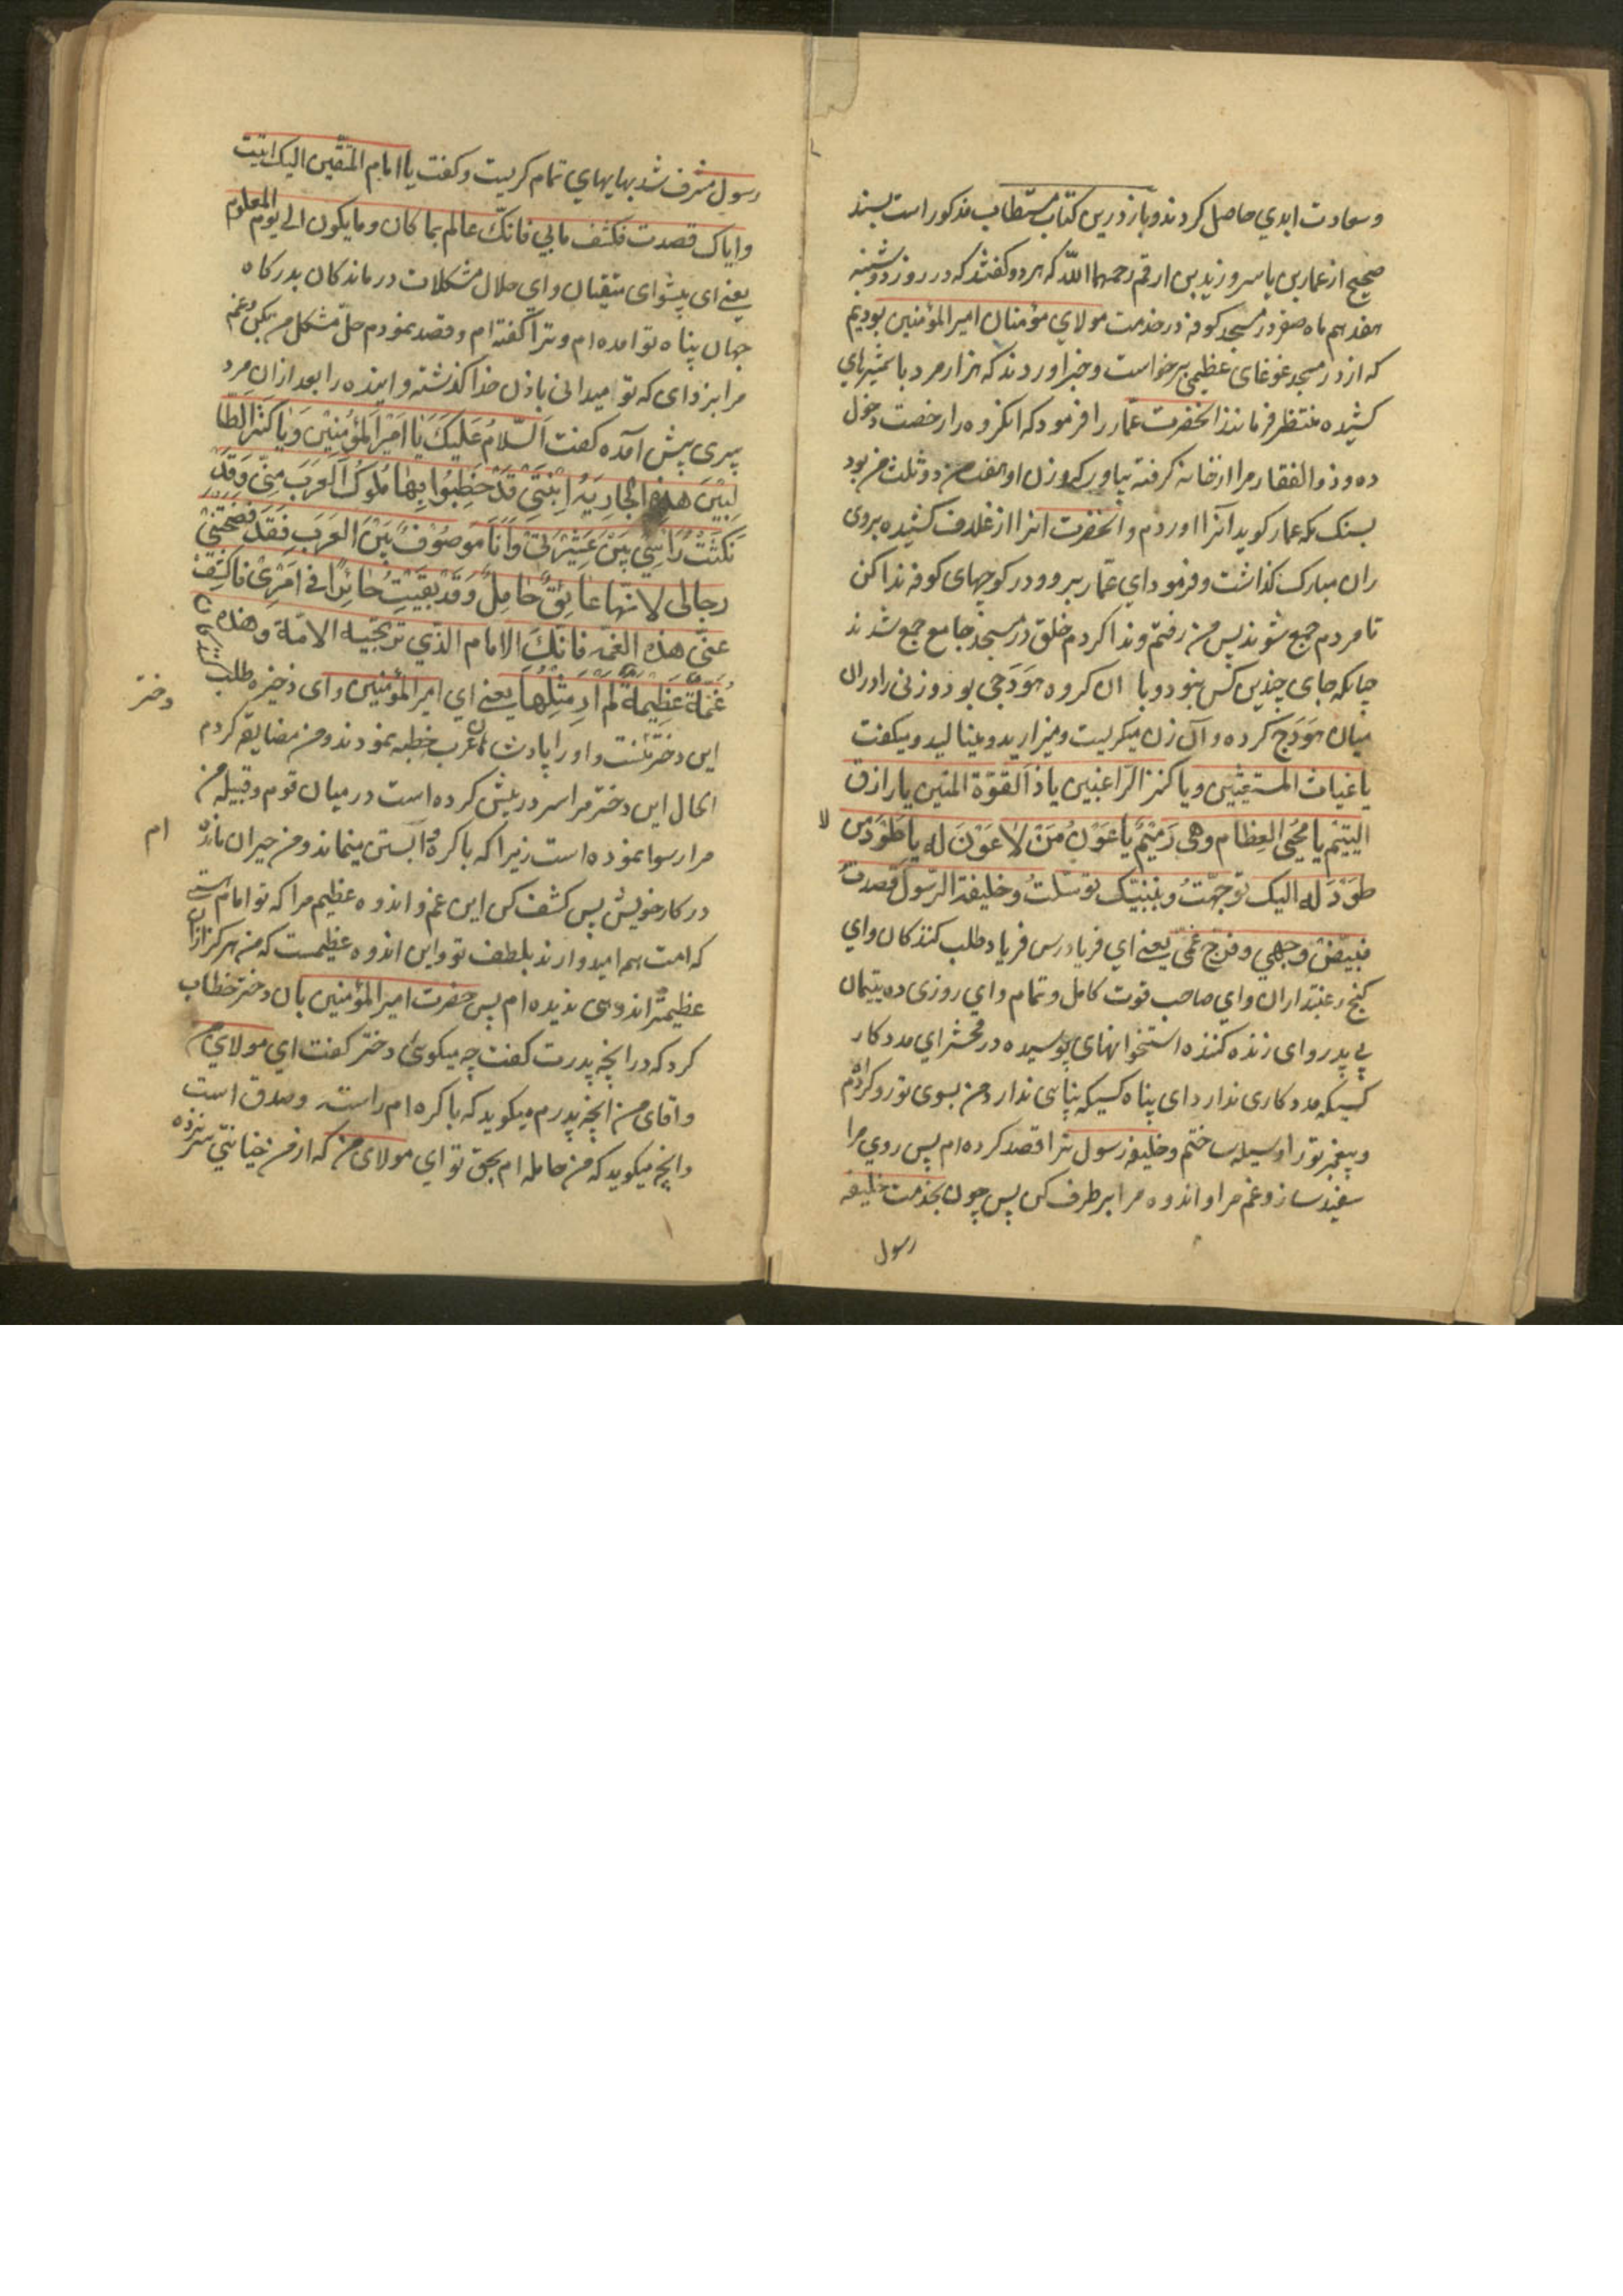 و سعادت ابدي حاصل کردند و باز درین کتاب مستطاب مذکور است بسند
صحیح از عمار بن یاسر و زید بن ارقم رحمهما الله که هر دو گفتند که در روز دوشنبه
هفدهم ماه صفر در مسجد کوفه در خدمت مولاي مؤمنان امیر المؤمنین بودیم
که از در مسجد غوغای عظیمی برخواست و خبر اوردند که هزار مرد با شمشیرهاي
کشیده منتظر فرمانند انحضرت عمار را فرمود که انکروه را رخصت دخول
ده و ذو الفقار مرا از خانه کرفته بیاور که وزن او هفت من و دو ثلث من بود
بسنک مکه عمار کوید آنرا اوردم و انحضرت انرا از غلاف کشیده بروی
ران مبارک گذاشت و فرمود اي عمار برو و در کوچهای کوفه ندا کن
تا مردم جمع شوند پس من رفتم و ندا کردم خلق در مسجد جامع جمع شدند
چنانکه جای چندین کس نبود و با ان کروه هودجی بود و زنی را در ان
میان هودج کرده و آن زن میکریست و میزارید و مینالید و میکفت
یا غیاث المستغیثین و یا کنز الراغبین یا ذا القوة المتین یا رازق
الیتیم یا محیی العظام وهی رمیم یا عون من لا عون له یا طود من
لا
طود له الیک توجهت و بنبیک توسلت و خلیفة الرسول قصدت
فبیض وجهي و فرج غمی یعنے اي فریادرس فریاد طلب کنندکان و اي
کنج رغبتداران و اي صاحب قوت کامل و تمام و اي روزی ده یتیمان
بی پدر و ای زنده کننده استخوانهای پوسیده در محشر اي مددکار
کسیکه مددکاری ندارد ای پناه کسیکه پناهی ندارد من بسوی تو رو کرده ام
و پیغمبر تو را وسیله ساختم و خلیفه رسول ترا قصد کرده ام پس روي مرا
سفید ساز و غم مرا و اندوه مرا برطرف کن پس چون بخدمت خلیفه
رسول
رسول مشرف شد بهایهاي تمام کریست و کفت یا امام المتقین الیک اتیت
و ایاک قصدت فکشف مابي فانک عالم بما کان و ما یکون الی یوم المعلوم
یعنے ای پیشوای متقیان و اي حلال مشکلات درماندکان بدرکاه
جهان پناه تو امده ام و ترا کفته ام و قصد نمودم حل مشکل من بکن و غم
مرا بزدای که تو میدانی باذن خدا کذشته و اینده را بعد ازان مرد
پیری پیش آمده کفت السلام علیک یا امیر المؤمنین و یا کنز الطا
لبین هذه الجاریة ابنتی قد خطبوا بها ملوک العرب منی و قد
نکثت راسي بین عشیرتی و انا موصوف بین العرب فقد فضحتنی
رجالی لانها عاتق حامل و قد بقیت حائرا فی امری فاکشف
عنی هذه الغمه فانک الامام الذي ترتجیه الامة و هذه
غمة عظیمة لم ار مثلها یعنے اي امیر المؤمنین و ای ذخیره طلب
این دختر منست و او را پادشاهان عرب خطبه نمودند و من مضایقه کردم
دختر
الحال این دختر مرا سر در پیش کرده است در میان قوم و قبیله من
مرا رسوا نموده است زیرا که باکره و آبستن مینماند و من حیران مانده
ام
در کار خویش پس کشف کن این غم و اندوه عظیم مرا که تو امام هستے
که امت هم امیدوارند بلطف تو و این اندوه عظیمست که من هرکز ازان
عظیمتر اندوهی ندیده ام پس حضرت امیر المؤمنین بان دختر خطاب
کرد که در انچه پدرت کفت چه میکوئی دختر کفت اي مولاي من
و اقای من انچه پدرم میکوید که باکره ام راست و صدق است
و انچه میکوید که من حامله ام بحق تو اي مولای من که از من خیانتي سر نزده